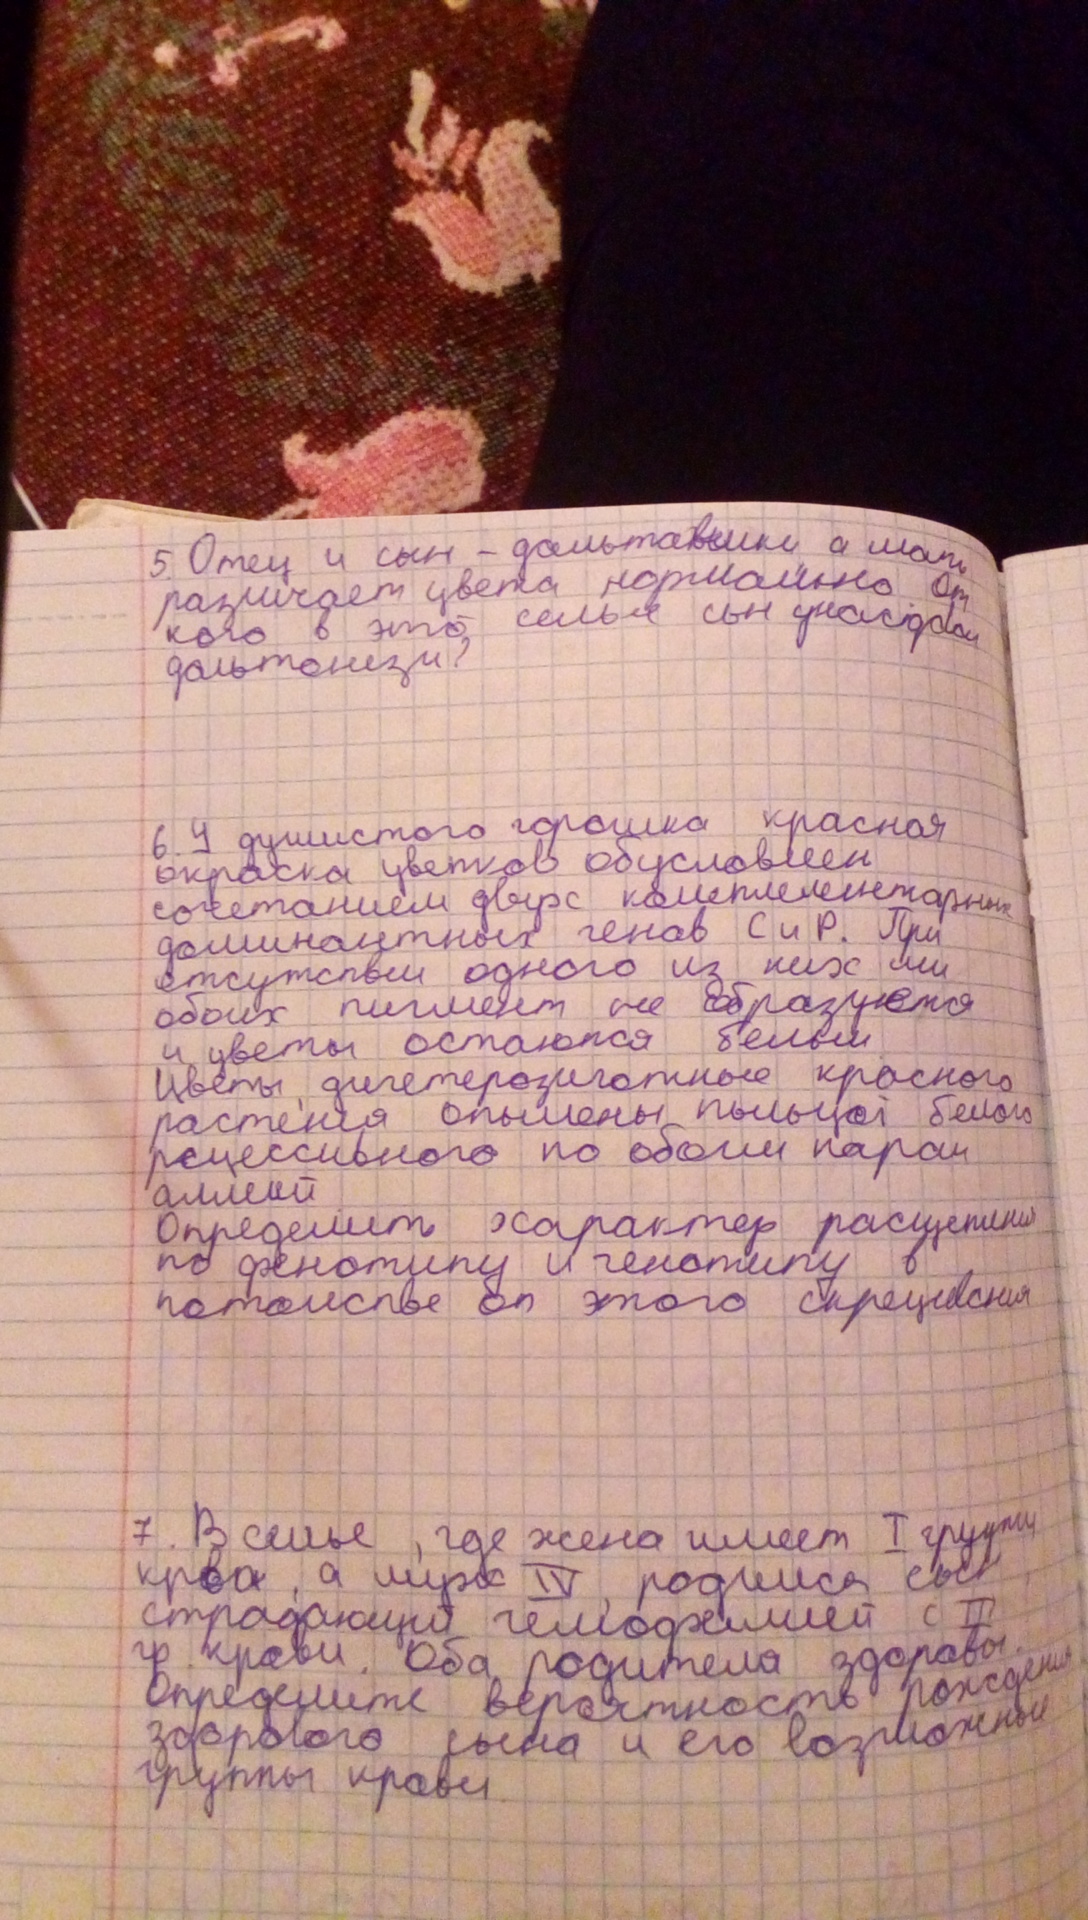 5. Отец и сын – дальтоники а мать
различает цвета нормально От
кого в этой семье сын унаследовал
дальтонизм?
6. У душистого горошка красная
окраска цветков обусловлен
сочетанием двух комплементарных
доминантных генов С и Р. При
отсутствии одного из них или
обоих пигмент не образуется
и цветы остаются белыми
Цветы дигетерозиготные красного
растения опылены пыльцой белого
рецессивного по обоим парам
аллелей
Определить характер расщепления
по фенотипу и генотипу в
потомстве от этого скрещивания
7. В семье, где жена имеет I группу
крови, а муж IV, родился сын
страдающий гемофилией с III
гр. крови. Оба родителя здоровы.
Определите вероятность рождения
здорового сына и его возможные
группы крови